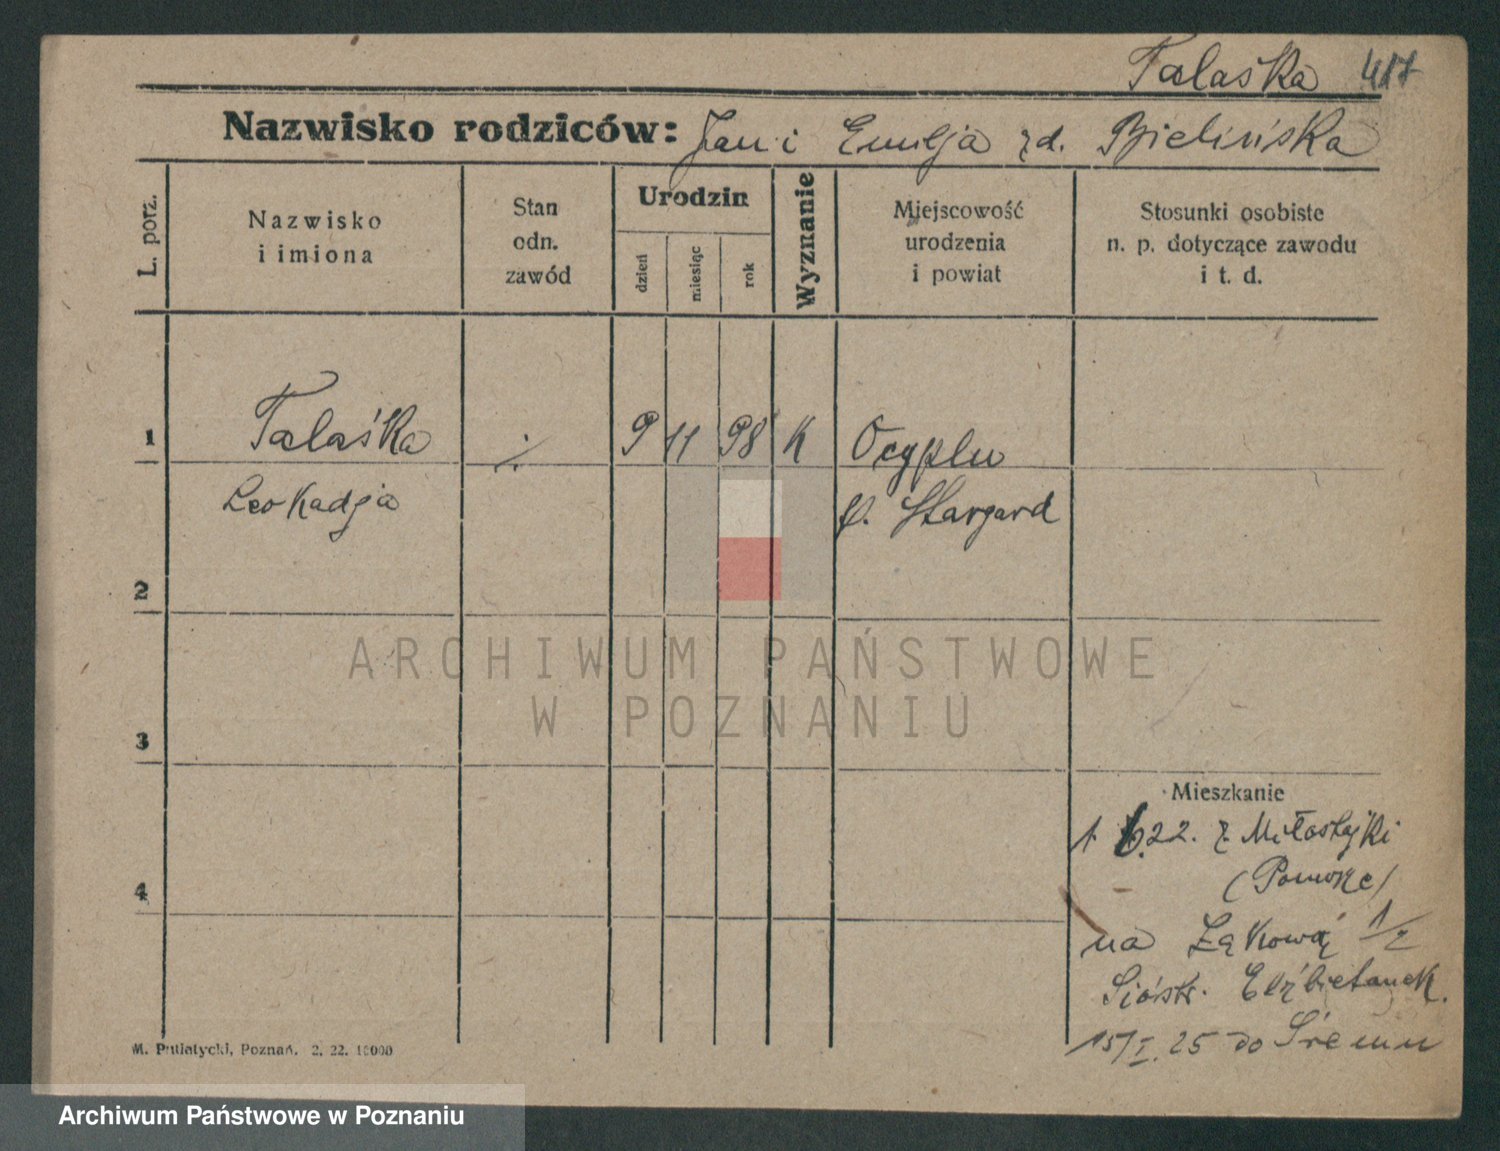 Talaśka 417
Nazwisko rodziców: Jan i Emilja zd. Bielińska
L. porz.
Nazwisko
i imiona
Stan
odn.
zawód
Urodzin
dzień
miesiąc
rok
Wyznanie
Miejscowość
urodzenia
i powiat
Stosunki osobiste
n. p. dotyczące zawodu
i t. d.
1 Talaśka ./. 9 11 98 K Ocyplu
Leokadja p. Stargard
2
ARCHIWUM PAŃSTWOWE
W POZNANIU
3
Mieszkanie
1. 6.22. z
(Pomorze)
4
na Łąkową 1/2
Sióstr. Elżbietanek.
15/I.25 do Śremu
M. Putiatycki, Poznań. 2. 22. 10000
Archiwum Państwowe w Poznaniu